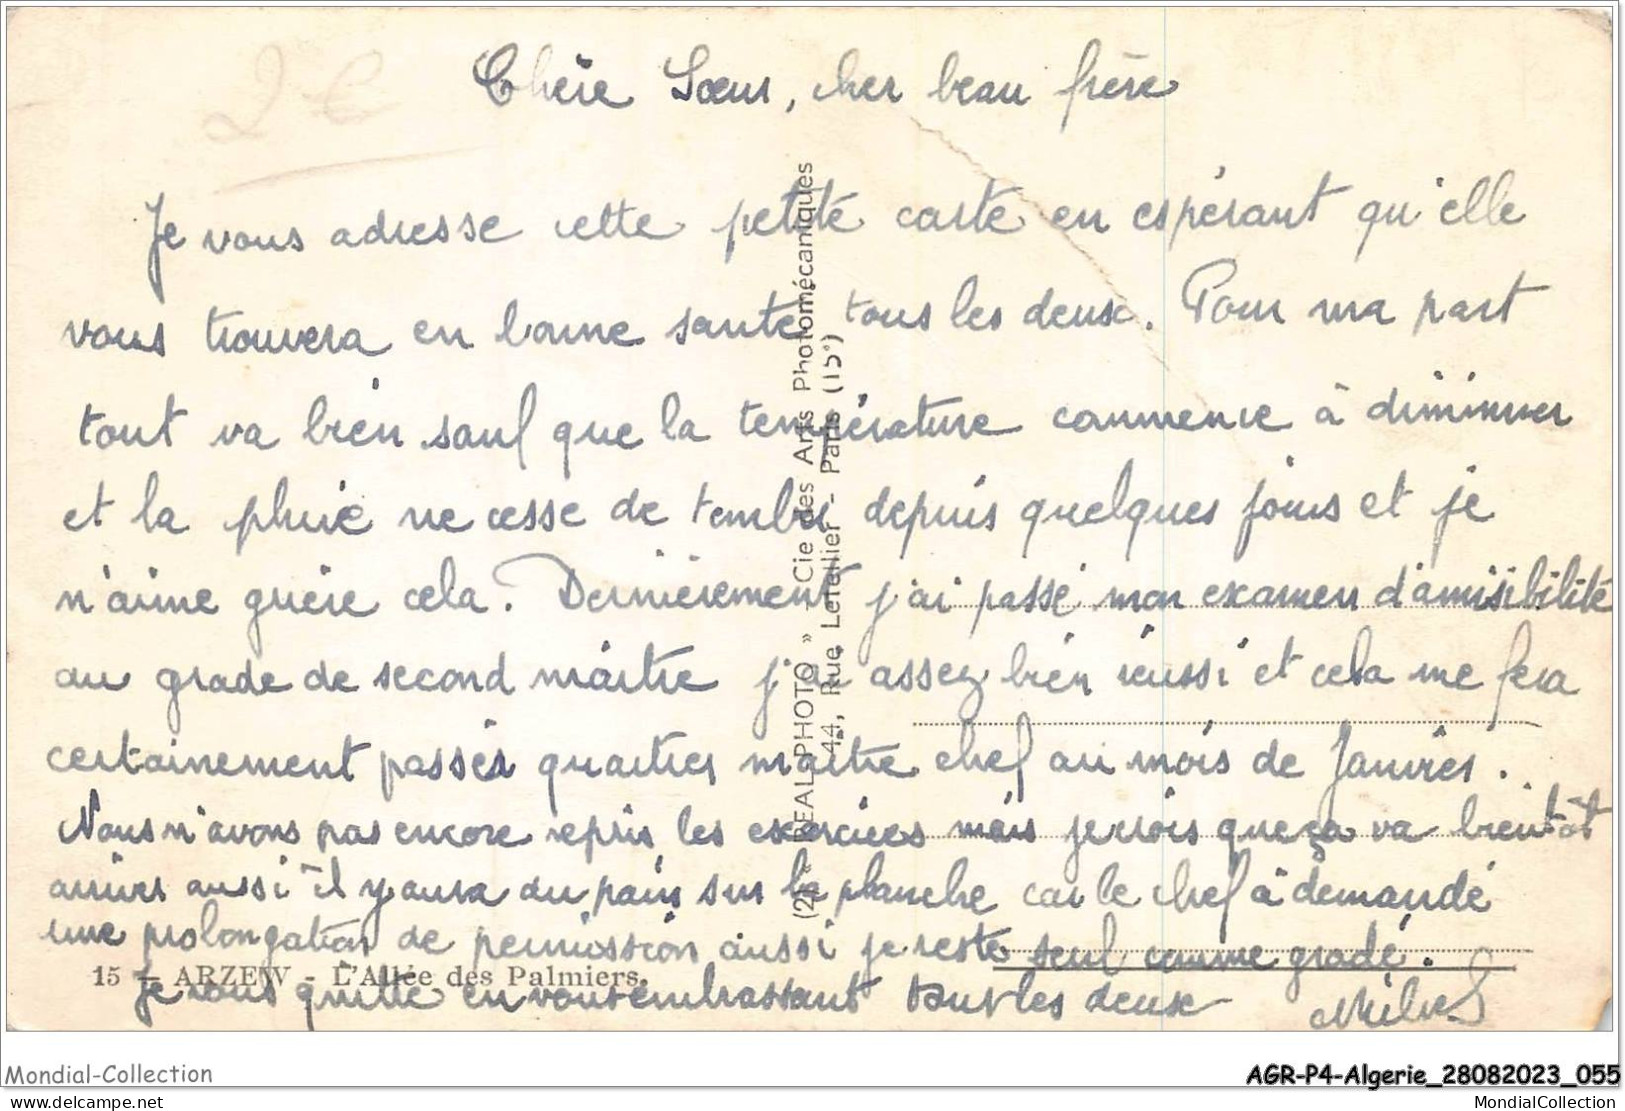 2 €
Chère Sœur, cher beau frère
Je vous adresse cette petite carte en espérant qu'elle
vous trouvera en bonne santé tous les deux. Pour ma part
tout va bien sauf que la température commence à diminuer
et la pluie ne cesse de tomber depuis quelques jours et je
n'aime guère cela. Dernièrement j'ai passé mon examen d'amisibilité
au grade de second maître j'ai assez bien réussi et cela me fera
certainement passer quartier maître chef au mois de Janvier.
Nous n'avons pas encore repris les exercices mais je crois que ça va bientôt
arriver aussi il y aura du pain sur la planche car le chef à demandé
une prolongation de permission aussi je reste seul comme gradé.
Je vous quitte en vous embrassant tous les deux
15 — ARZEW - L'Allée des Palmiers.
(2) « REAL-PHOTO » - Cie des Arts Photomécaniques
44, Rue Letellier - Paris (15°)
Mondial-Collection
AGR-P4-Algerie_28082023_055
delcampe.net
MondialCollection